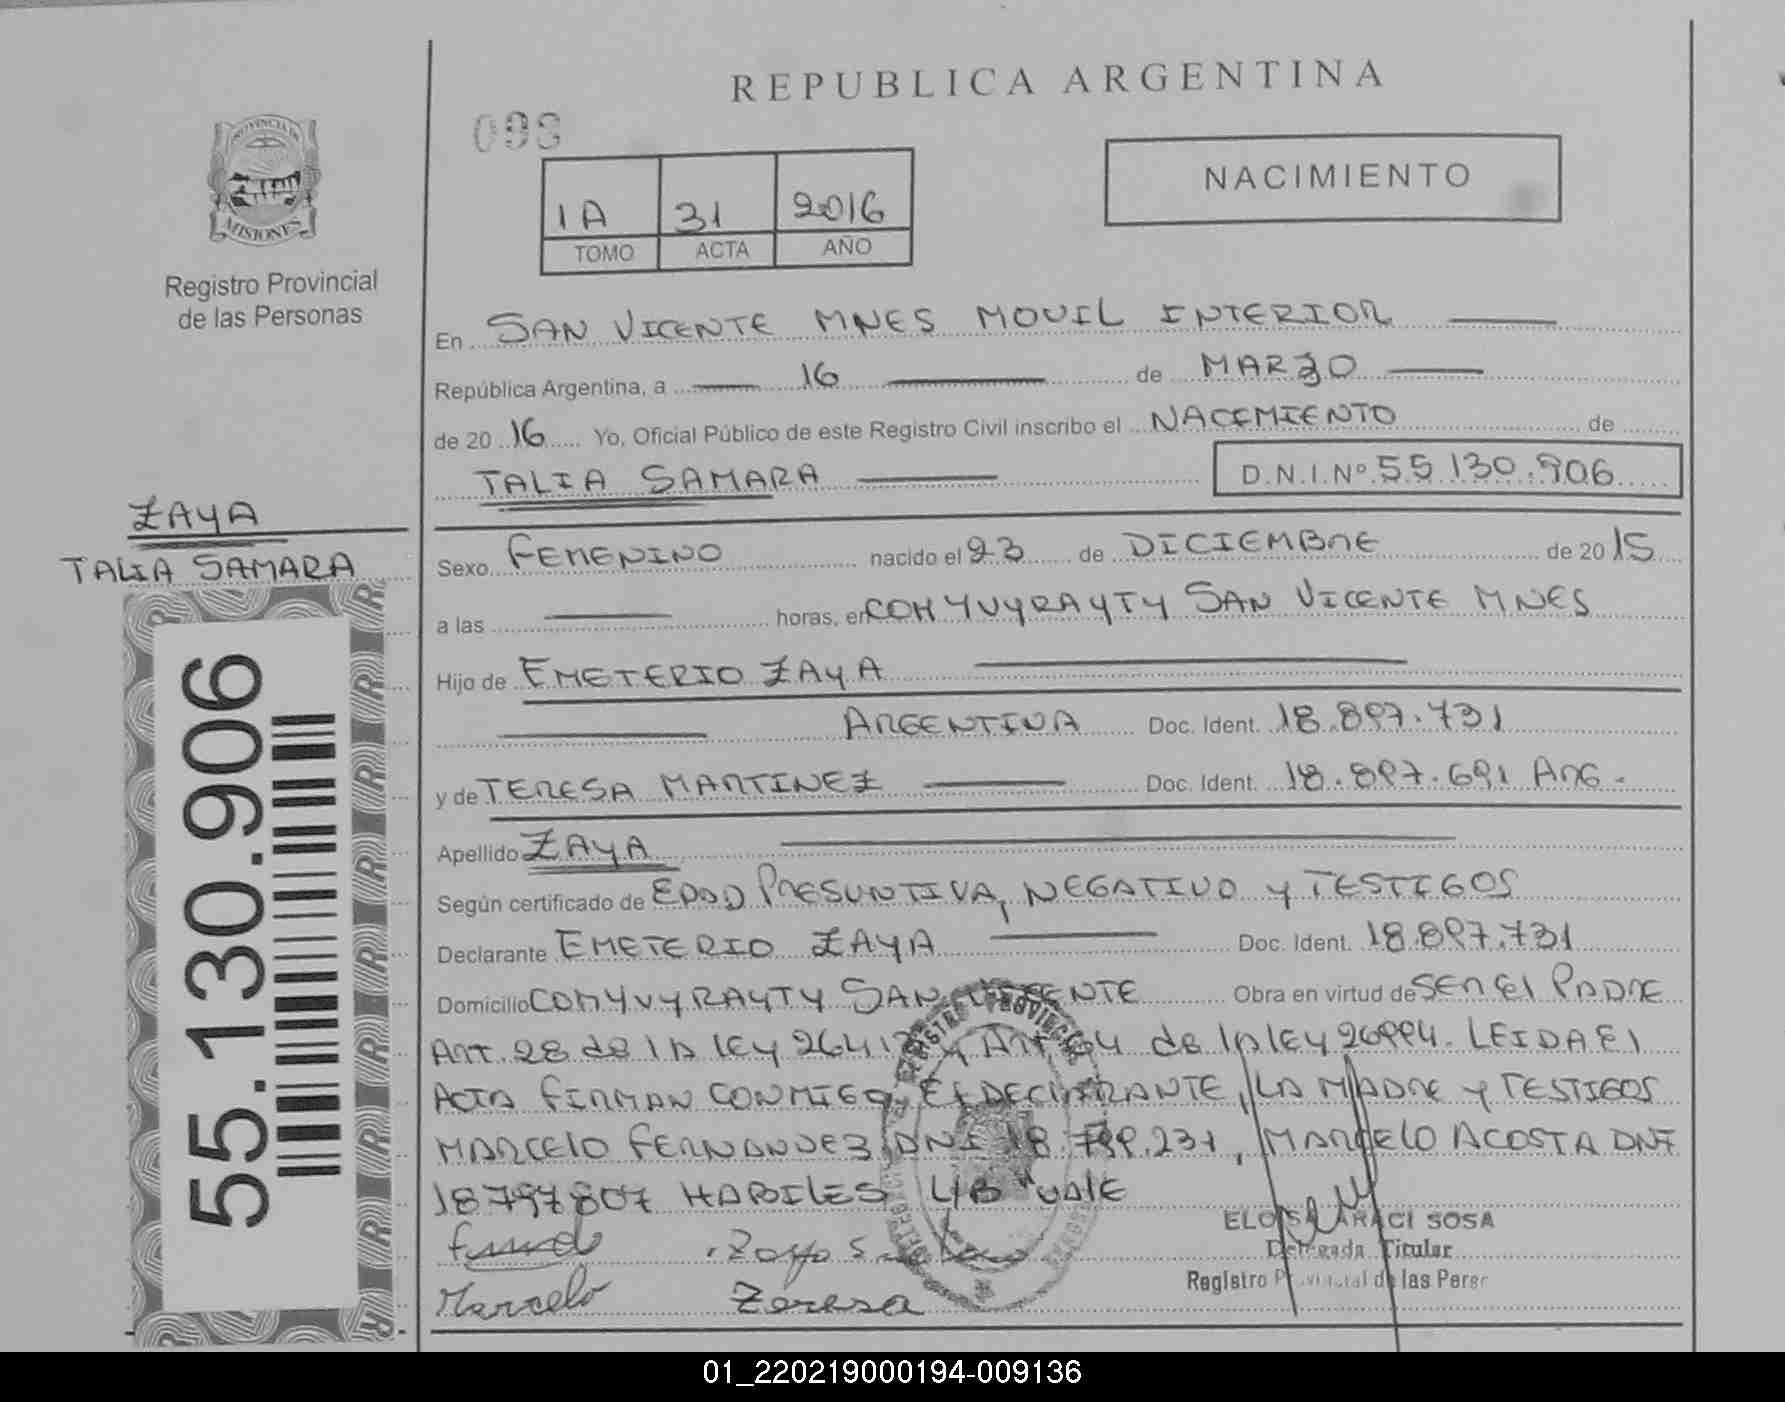 REPUBLICA ARGENTINA
093
PROVINCIA DE
MISIONES
Registro Provincial
de las Personas
1A 31 2016
TOMO ACTA AÑO
NACIMIENTO
En SAN VICENTE MNES MOVIL INTERIOR
República Argentina, a 16 de MARZO
de 2016 Yo, Oficial Público de este Registro Civil inscribo el NACIMIENTO de
TALIA SAMARA D.N.I.Nº 55.130.906
ZAYA
TALIA SAMARA
Sexo FEMENINO nacido el 23 de DICIEMBRE de 2015
a las horas, en COM YVYRAYTY SAN VICENTE MNES
Hijo de EMETERIO ZAYA
ARGENTINA Doc. Ident. 18.897.731
y de TERESA MARTINEZ Doc. Ident. 18.897.691 ARG.
Apellido ZAYA
Según certificado de EDAD PRESUNTIVA, NEGATIVO y TESTIGOS
Declarante EMETERIO ZAYA Doc. Ident. 18.897.731
Domicilio COM YVYRAYTY SAN VICENTE Obra en virtud de SER El PADRE
ART. 28 de lA lEy 26413 y ART. 64 de lA lEy 26994. LEIDA El
ACTA FIRMAN CONMIGO El DEClARANTE, LA MADRE y TESTIGOS
MARCElO FERNANDEZ DNI 18.799.231, MARCELO ACOSTA DNI
18797807 HABILES L/B "VAlE
Marcelo Teresa
ELOISA ARACI SOSA
Delegada Titular
Registro Provincial de las Perso
55.130.906
01_220219000194-009136